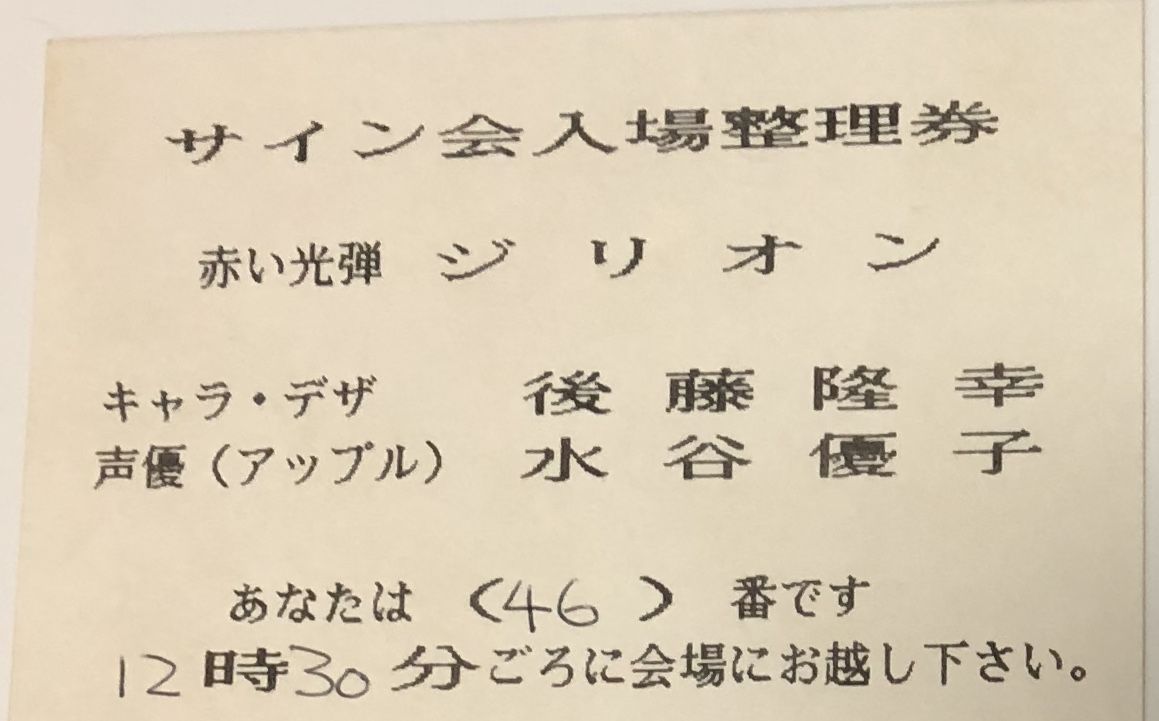 サイン会入場整理券
赤い光弾 ジリオン
キャラ・デザ 後藤隆幸
声優（アップル） 水谷優子
あなたは （46） 番です
12時30分ごろに会場にお越し下さい。